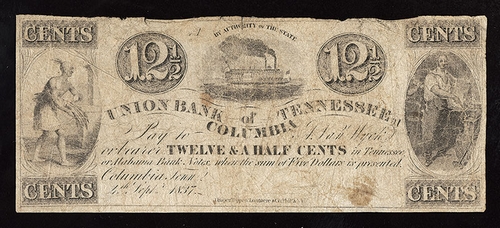 CENTS BY AUTHORITY OF THE STATE CENTS
12½ 12½
UNION BANK of TENNESSEE at
COLUMBIA
Pay to
or bearer TWELVE & A HALF CENTS in Tennessee
or Alabama Bank Notes, when the sum of Five Dollars is presented.
Columbia Tenn.
4th Sept. 1837
CENTS CENTS